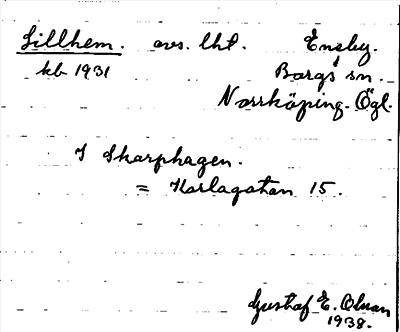 Lillhem. avs. lht. Ensby.
kb 1931 Borgs sn.
Norrköping. Ögl.
I Skarphagen.
= Karlagatan 15.
Gustaf E. Olman
1938.